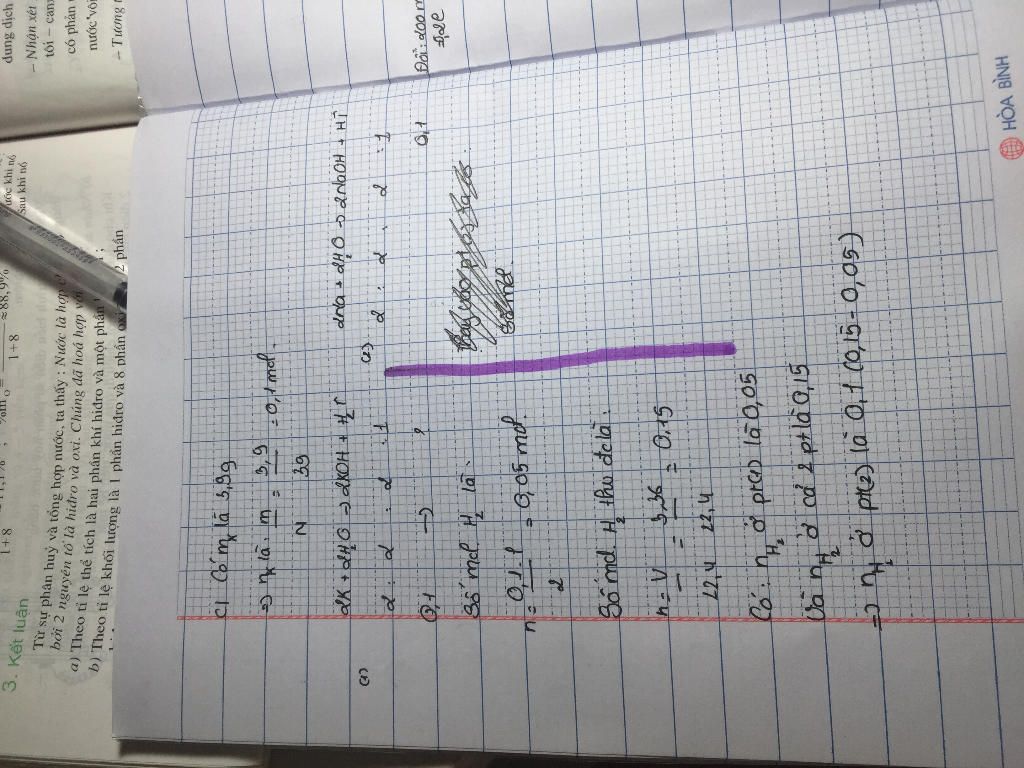 dung dịch
– Nhận xét
tôi – can
có phản
nước vôi
– Tường t
1 + 8
1 + 8
≈ 88,9%
3. Kết luận
Từ sự phân huỷ và tổng hợp nước, ta thấy : Nước là hợp c
bởi 2 nguyên tố là hiđro và oxi. Chúng đã hoá hợp với
a) Theo tỉ lệ thể tích là hai phần khí hiđro và một phần
b) Theo tỉ lệ khối lượng là 1 phần hiđro và 8 phần oxi
2 phần
Sau khi nó
Đổi: 200 m
c) Có mK là 3,9g
=> nK là: m/N = 3,9/39 = 0,1 mol.
2K + 2H2O -> 2KOH + H2↑
2 : 2 : 2 : 1
0,1 ->
Số mol H2 là:
n = 0,1.1/2 = 0,05 mol.
Số mol H2 thu đc là:
n = V/22,4 = 3,36/22,4 = 0,15
Có: nH2 ở pt(1) là 0,05
Và nH2 ở cả 2 pt là 0,15
=> nH2 ở pt(2) là 0,1 (0,15 - 0,05)
2Na + 2H2O -> 2NaOH + H↑
2 : 2 : 2 : 1
0,1
HÒA BÌNH